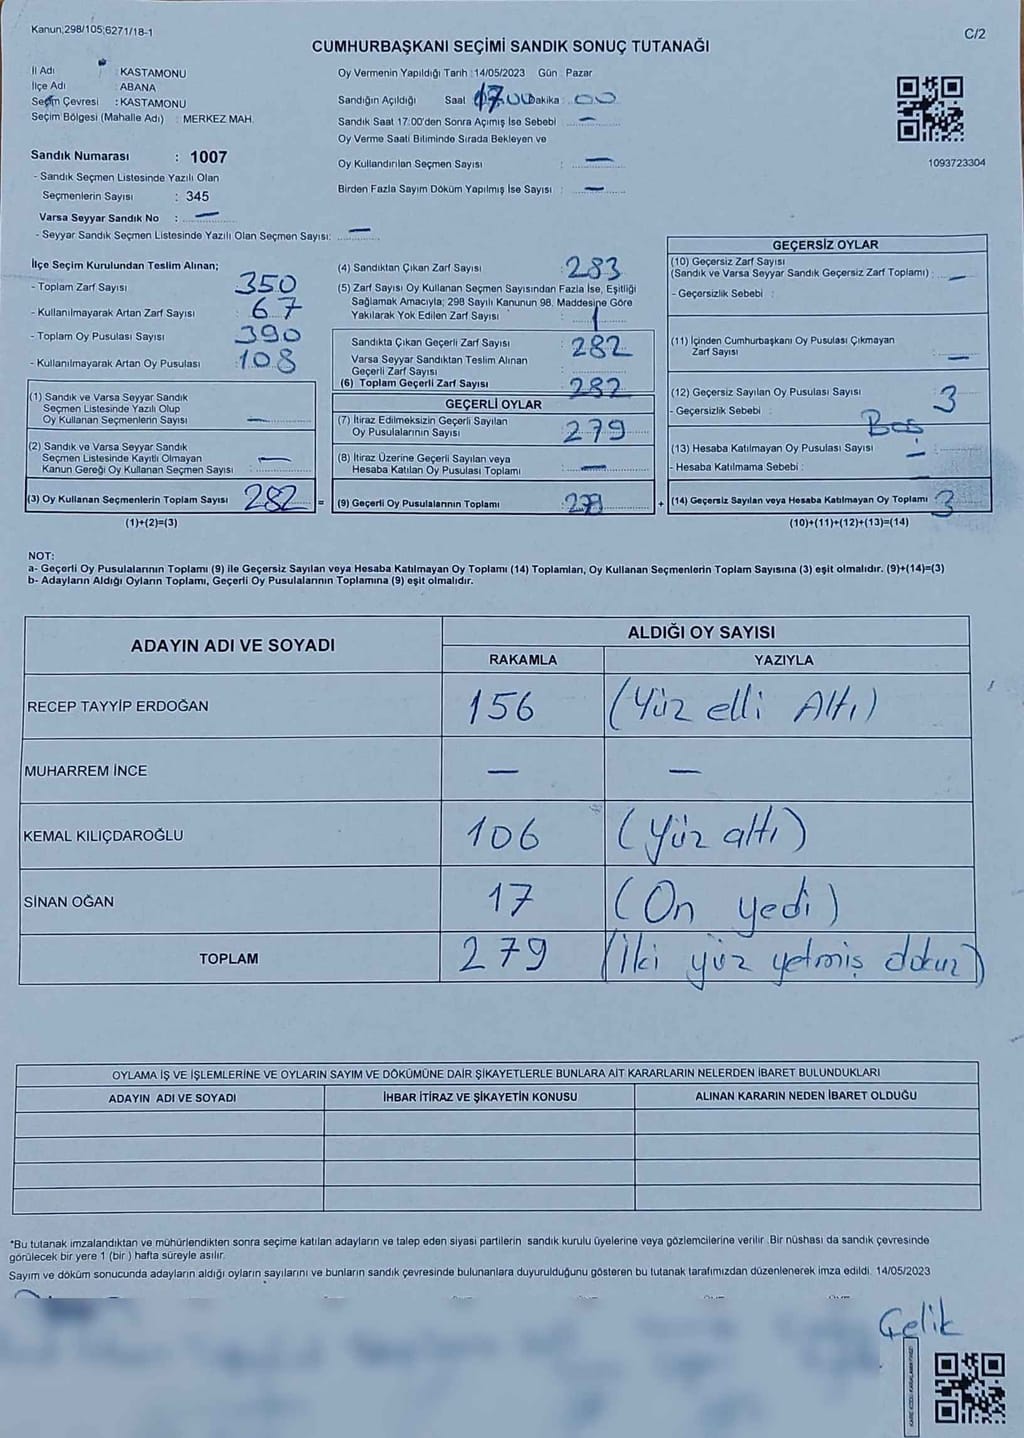 Kanun;298/105;6271/18-1
C/2
CUMHURBAŞKANI SEÇİMİ SANDIK SONUÇ TUTANAĞI
İl Adı : KASTAMONU
İlçe Adı : ABANA
Seçim Çevresi : KASTAMONU
Seçim Bölgesi (Mahalle Adı) : MERKEZ MAH.
Sandık Numarası : 1007
- Sandık Seçmen Listesinde Yazılı Olan
Seçmenlerin Sayısı : 345
Varsa Seyyar Sandık No : —
- Seyyar Sandık Seçmen Listesinde Yazılı Olan Seçmen Sayısı: —
Oy Vermenin Yapıldığı Tarih :14/05/2023 Gün : Pazar
Sandığın Açıldığı Saat 17:00 Dakika : 00
Sandık Saat 17:00'den Sonra Açımış İse Sebebi : —
Oy Verme Saati Bitiminde Sırada Bekleyen ve
Oy Kullandırılan Seçmen Sayısı : —
Birden Fazla Sayım Döküm Yapılmış İse Sayısı : —
1093723304
İlçe Seçim Kurulundan Teslim Alınan;
- Toplam Zarf Sayısı : 350
- Kullanılmayarak Artan Zarf Sayısı : 67
- Toplam Oy Pusulası Sayısı : 390
- Kullanılmayarak Artan Oy Pusulası : 108
(1) Sandık ve Varsa Seyyar Sandık
Seçmen Listesinde Yazılı Olup
Oy Kullanan Seçmenlerin Sayısı : —
(2) Sandık ve Varsa Seyyar Sandık
Seçmen Listesinde Kayıtlı Olmayan
Kanun Gereği Oy Kullanan Seçmen Sayısı : —
(3) Oy Kullanan Seçmenlerin Toplam Sayısı : 282 =
(1)+(2)=(3)
(4) Sandıktan Çıkan Zarf Sayısı : 283
(5) Zarf Sayısı Oy Kullanan Seçmen Sayısından Fazla İse, Eşitliği
Sağlamak Amacıyla; 298 Sayılı Kanunun 98. Maddesine Göre
Yakılarak Yok Edilen Zarf Sayısı : 1
Sandıkta Çıkan Geçerli Zarf Sayısı : 282
Varsa Seyyar Sandıktan Teslim Alınan
Geçerli Zarf Sayısı :
(6) Toplam Geçerli Zarf Sayısı : 282
GEÇERLİ OYLAR
(7) İtiraz Edilmeksizin Geçerli Sayılan
Oy Pusulalarının Sayısı : 279
(8) İtiraz Üzerine Geçerli Sayılan veya
Hesaba Katılan Oy Pusulası Toplamı : —
(9) Geçerli Oy Pusulalarının Toplamı : 279 +
GEÇERSİZ OYLAR
(10) Geçersiz Zarf Sayısı
(Sandık ve Varsa Seyyar Sandık Geçersiz Zarf Toplamı) : —
- Geçersizlik Sebebi :
(11) İçinden Cumhurbaşkanı Oy Pusulası Çıkmayan
Zarf Sayısı : —
(12) Geçersiz Sayılan Oy Pusulası Sayısı : 3
- Geçersizlik Sebebi : Boş
(13) Hesaba Katılmayan Oy Pusulası Sayısı : —
- Hesaba Katılmama Sebebi :
(14) Geçersiz Sayılan veya Hesaba Katılmayan Oy Toplamı : 3
(10)+(11)+(12)+(13)=(14)
NOT:
a- Geçerli Oy Pusulalarının Toplamı (9) ile Geçersiz Sayılan veya Hesaba Katılmayan Oy Toplamı (14) Toplamları, Oy Kullanan Seçmenlerin Toplam Sayısına (3) eşit olmalıdır. (9)+(14)=(3)
b- Adayların Aldığı Oyların Toplamı, Geçerli Oy Pusulalarının Toplamına (9) eşit olmalıdır.
ADAYIN ADI VE SOYADI
ALDIĞI OY SAYISI
RAKAMLA YAZIYLA
RECEP TAYYİP ERDOĞAN 156 (Yüz elli Altı)
MUHARREM İNCE — —
KEMAL KILIÇDAROĞLU 106 (Yüz altı)
SİNAN OĞAN 17 (On yedi)
TOPLAM 279 (İki yüz yetmiş dokuz)
OYLAMA İŞ VE İŞLEMLERİNE VE OYLARIN SAYIM VE DÖKÜMÜNE DAİR ŞİKAYETLERLE BUNLARA AİT KARARLARIN NELERDEN İBARET BULUNDUKLARI
ADAYIN ADI VE SOYADI İHBAR İTİRAZ VE ŞİKAYETİN KONUSU ALINAN KARARIN NEDEN İBARET OLDUĞU
*Bu tutanak imzalandıktan ve mühürlendikten sonra seçime katılan adayların ve talep eden siyasi partilerin sandık kurulu üyelerine veya gözlemcilerine verilir .Bir nüshası da sandık çevresinde
görülecek bir yere 1 (bir ) hafta süreyle asılır.
Sayım ve döküm sonucunda adayların aldığı oyların sayılarını ve bunların sandık çevresinde bulunanlara duyurulduğunu gösteren bu tutanak tarafımızdan düzenlenerek imza edildi. 14/05/2023
Çelik